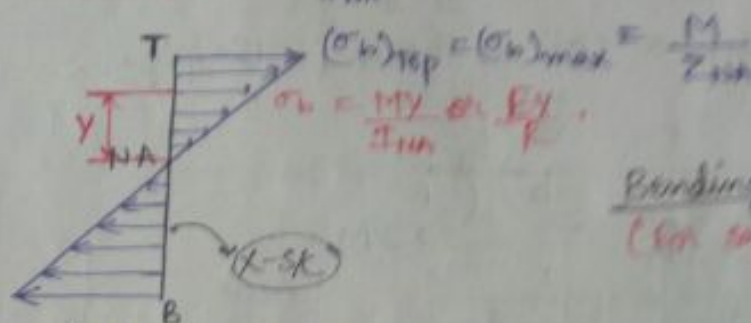 T (σb)Top = (σb)max = M / ZNA
Y
σb = MY / INA or EY / R .
NA
Bending
X-SX
B